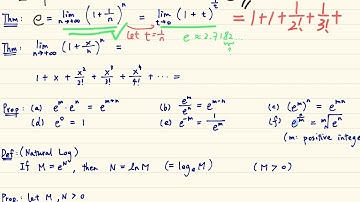 Thm: e = lim_{n→+∞} (1 + 1/n)^n = lim_{t→0} (1 + t)^{1/t} = 1 + 1 + 1/2! + 1/3! +
let t = 1/n e ≈ 2.7182...
Thm: lim_{n→+∞} (1 + x/n)^n =
1 + x + x²/2! + x³/3! + x⁴/4! + ... =
Prop: (a) e^m · e^n = e^{m+n} (b) e^m/e^n = e^{m-n} (c) (e^m)^n = e^{mn}
(d) e^0 = 1 (e) e^{-m} = 1/e^m (f) e^{n/m} = ᵐ√e^n
(m: positive intege
Def: (Natural Log)
If M = e^N, then N = ln M (= log_e M) (M > 0)
Prop: let M, N > 0